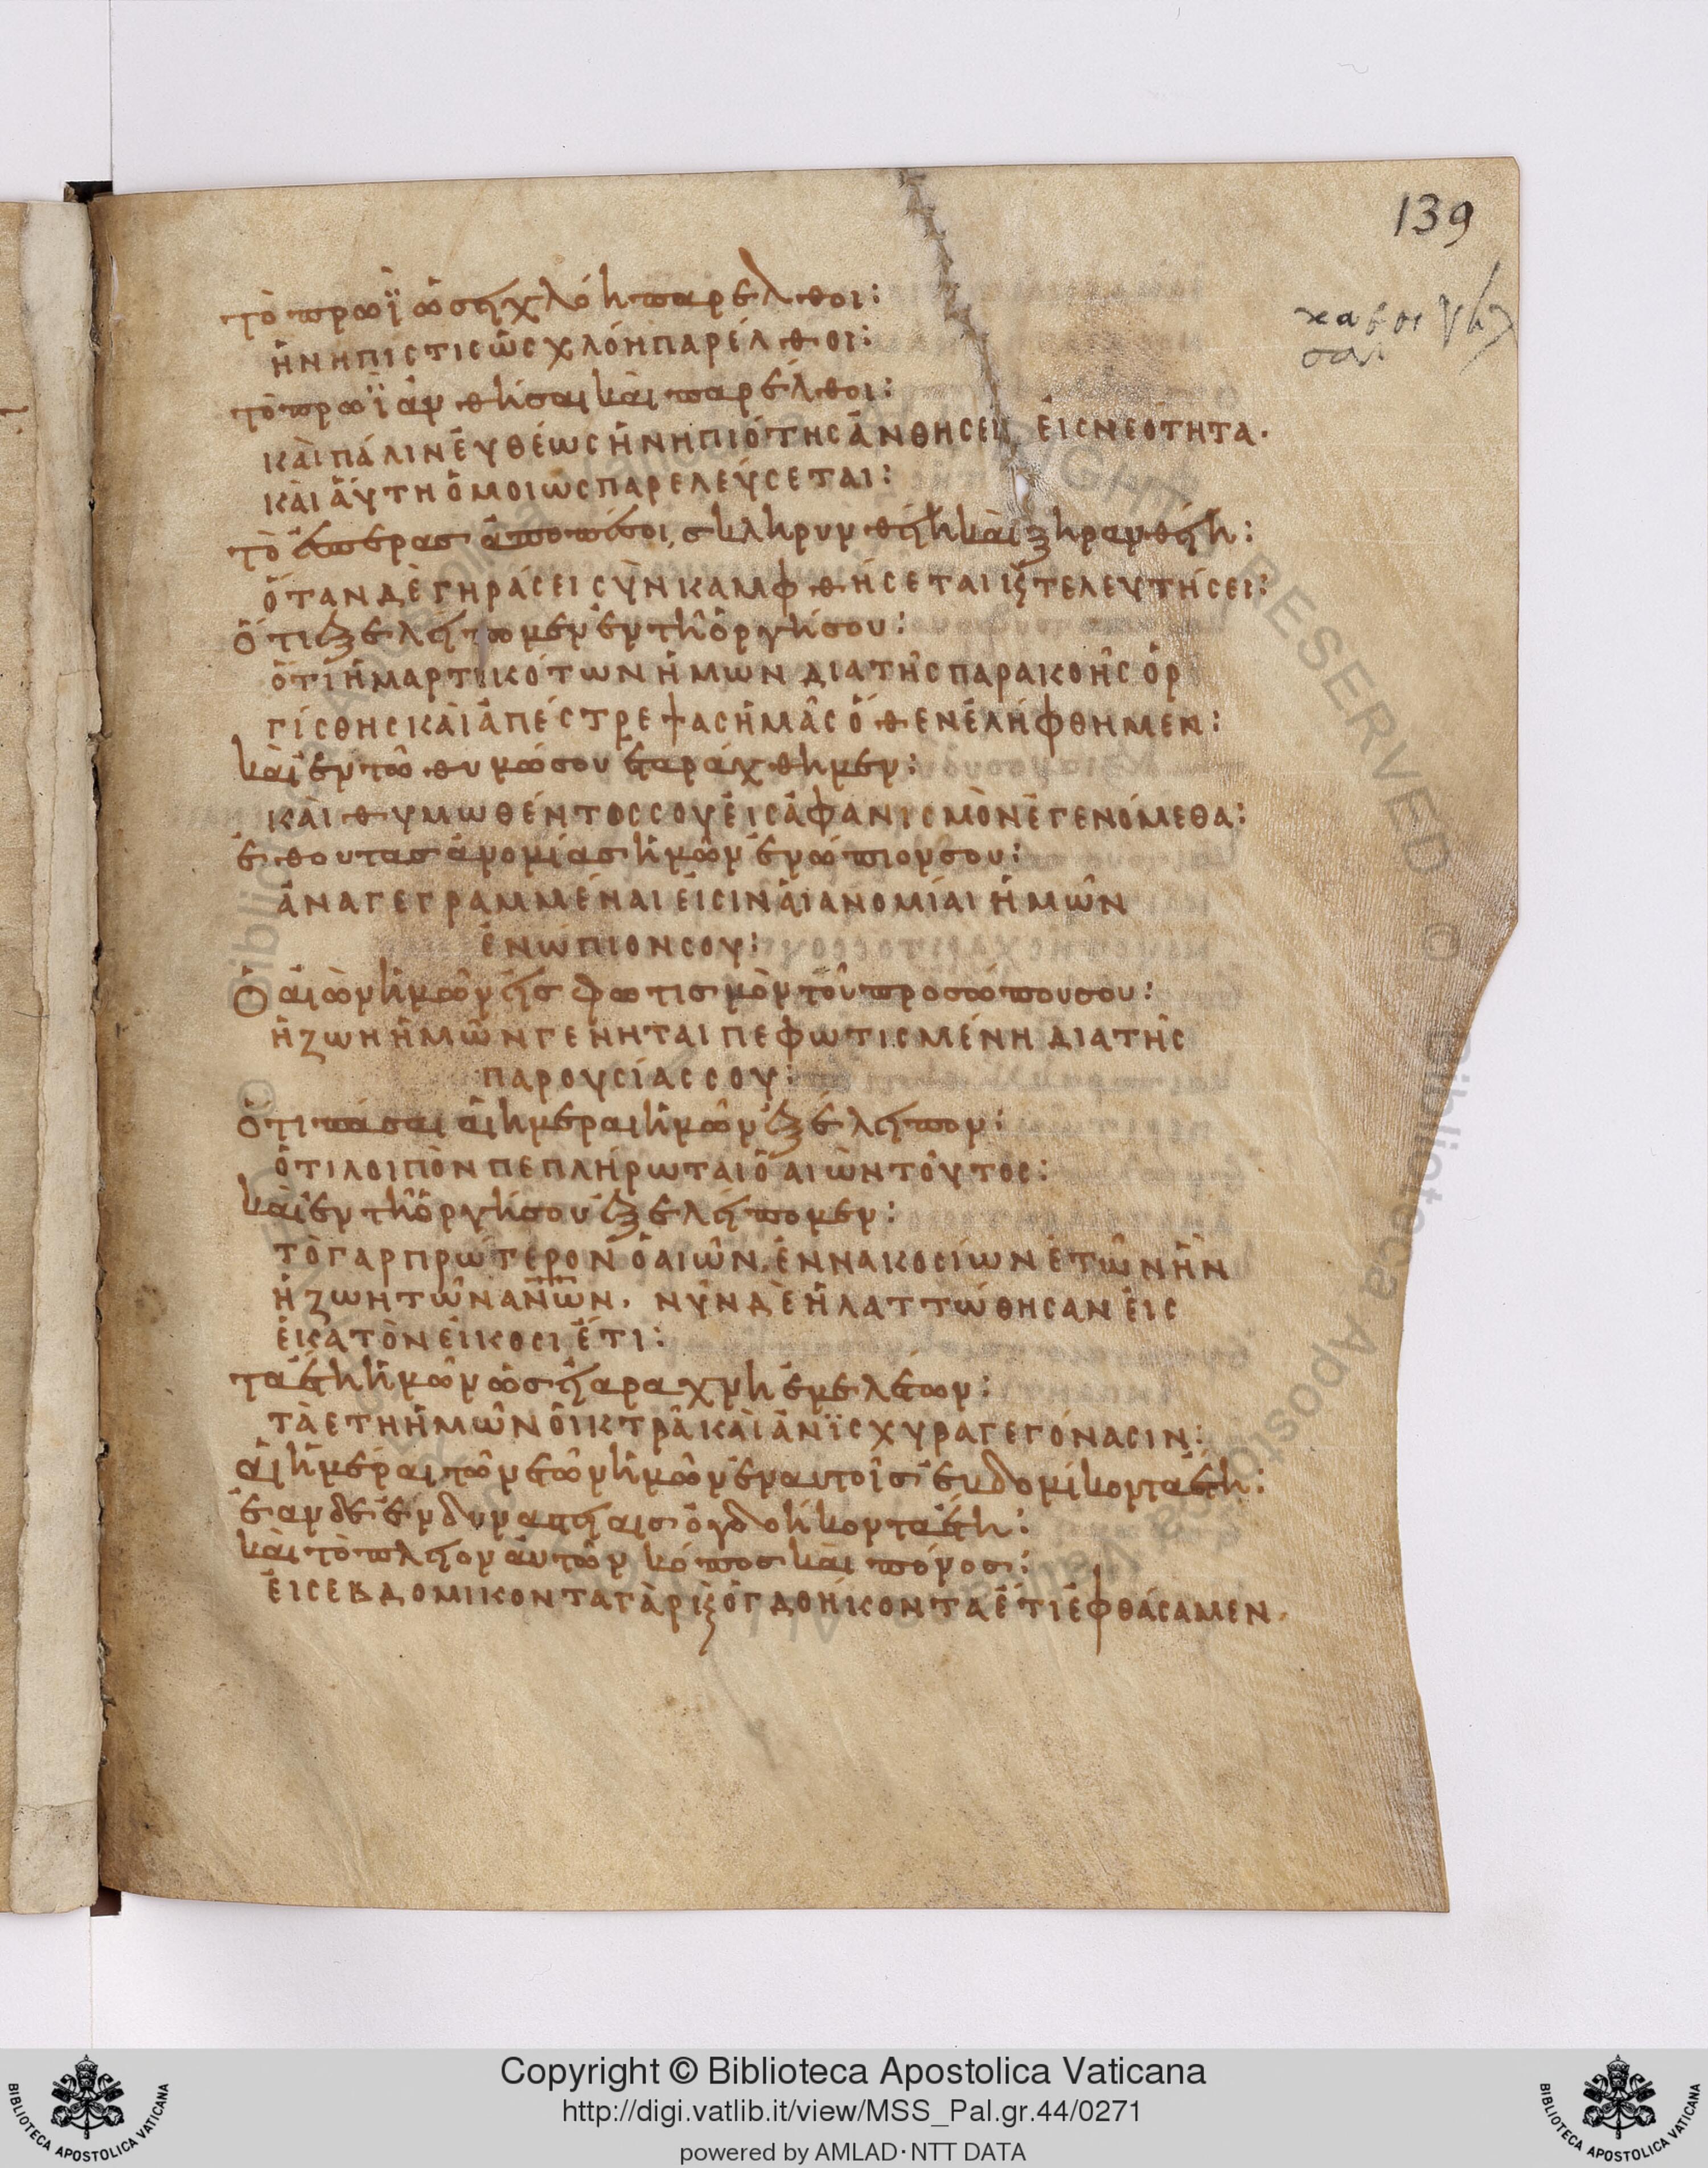 139
τὸ πρωῒ ὡσεὶ χλόη παρέλθοι:
ἡ νηπιστις ὡς χλόη παρέλθοι:
τὸ πρωῒ ἀνθήσαι καὶ παρέλθοι:
καὶ πάλιν ἐυθέως ἡ νηπιότης ἀνθήσει εἰς νεότητα.
καὶ ἀύτη ὁμοίως παρελεύσεται:
τὸ ἑσπέρας ἀποπέσοι, σκληρυνθείη καὶ ξηρανθείη:
ὅταν δὲ γηράσει σὺνκαμφθήσεται κ τελευτήσει:
ὅτι ἐξελείπωμεν ἐν τῆ ὀργή σου:
ὅτι ἡμαρτικότων ἡμων δια τῆς παρακοῆς ὀρ
γίσθης καὶ ἀπέστρεψας ἡμᾶς ὅθεν ἐλήφθημεν:
καὶ ἐν τῶ θυμώ σου ἐταράχθημεν:
καὶ θυμωθέντος σου ἐις ἀφανισμὸν ἐγενόμεθα:
ἔθου τας ἀνομίας ἡμῶν ἐνώπιον σου:
ἀναγεγραμμέναι ἐισιν ἁι ἀνομίαι ἡμῶν
ἐνώπιον σου:
ὁ αἰὼν ἡμῶν εἰς φωτισμὸν τοῦ προσώπου σου:
ἡ ζωη ἡμῶν γενηται πεφωτισμένη δια τῆς
παρουσίας σου:
ὅτι πάσαι αἱ ἡμέραι ἡμῶν ἐξέλειπον:
ὅτι λοιπὸν πεπλήρωται ὁ αιὼν τοῦτος:
καὶ ἐν τῆ ὀργή σου ἐξελείπομεν:
τὸ γαρ πρώτερον ὁ αιῶν, ἐννακοσίων ἐτῶν ἦν
ἡ ζωη τῶν ανων. νῦν δὲ ἠλαττώθησαν ἐις
ἑκατὸν ἐικοσι ἔτι:
τα ἔτη ἡμῶν ὡσεὶ ἀραχνη ἐμελέτων:
τὰ ετη ἡμῶν ὀικτρὰ καὶ ἀνϊσχυρα γεγόνασιν:
αἱ ἡμέραι τῶν ἐτῶν ἡμῶν ἐν αυτοῖς ἑυδομίκοντα ἔτη:
ἐαν δὲ ἐν δυναστείαις ὀγδοήκοντα ἔτη:
καὶ τὸ πλεῖον αὐτῶν κόπος καὶ πόνος:
ἐις εβδομικοντα γὰρ κ ὀγδοήκοντα ἔτι ἐφθάσαμεν.
Copyright © Biblioteca Apostolica Vaticana
http://digi.vatlib.it/view/MSS_Pal.gr.44/0271
powered by AMLAD·NTT DATA
BIBLIOTECA APOSTOLICA VATICANA
BIBLIOTECA APOSTOLICA VATICANA